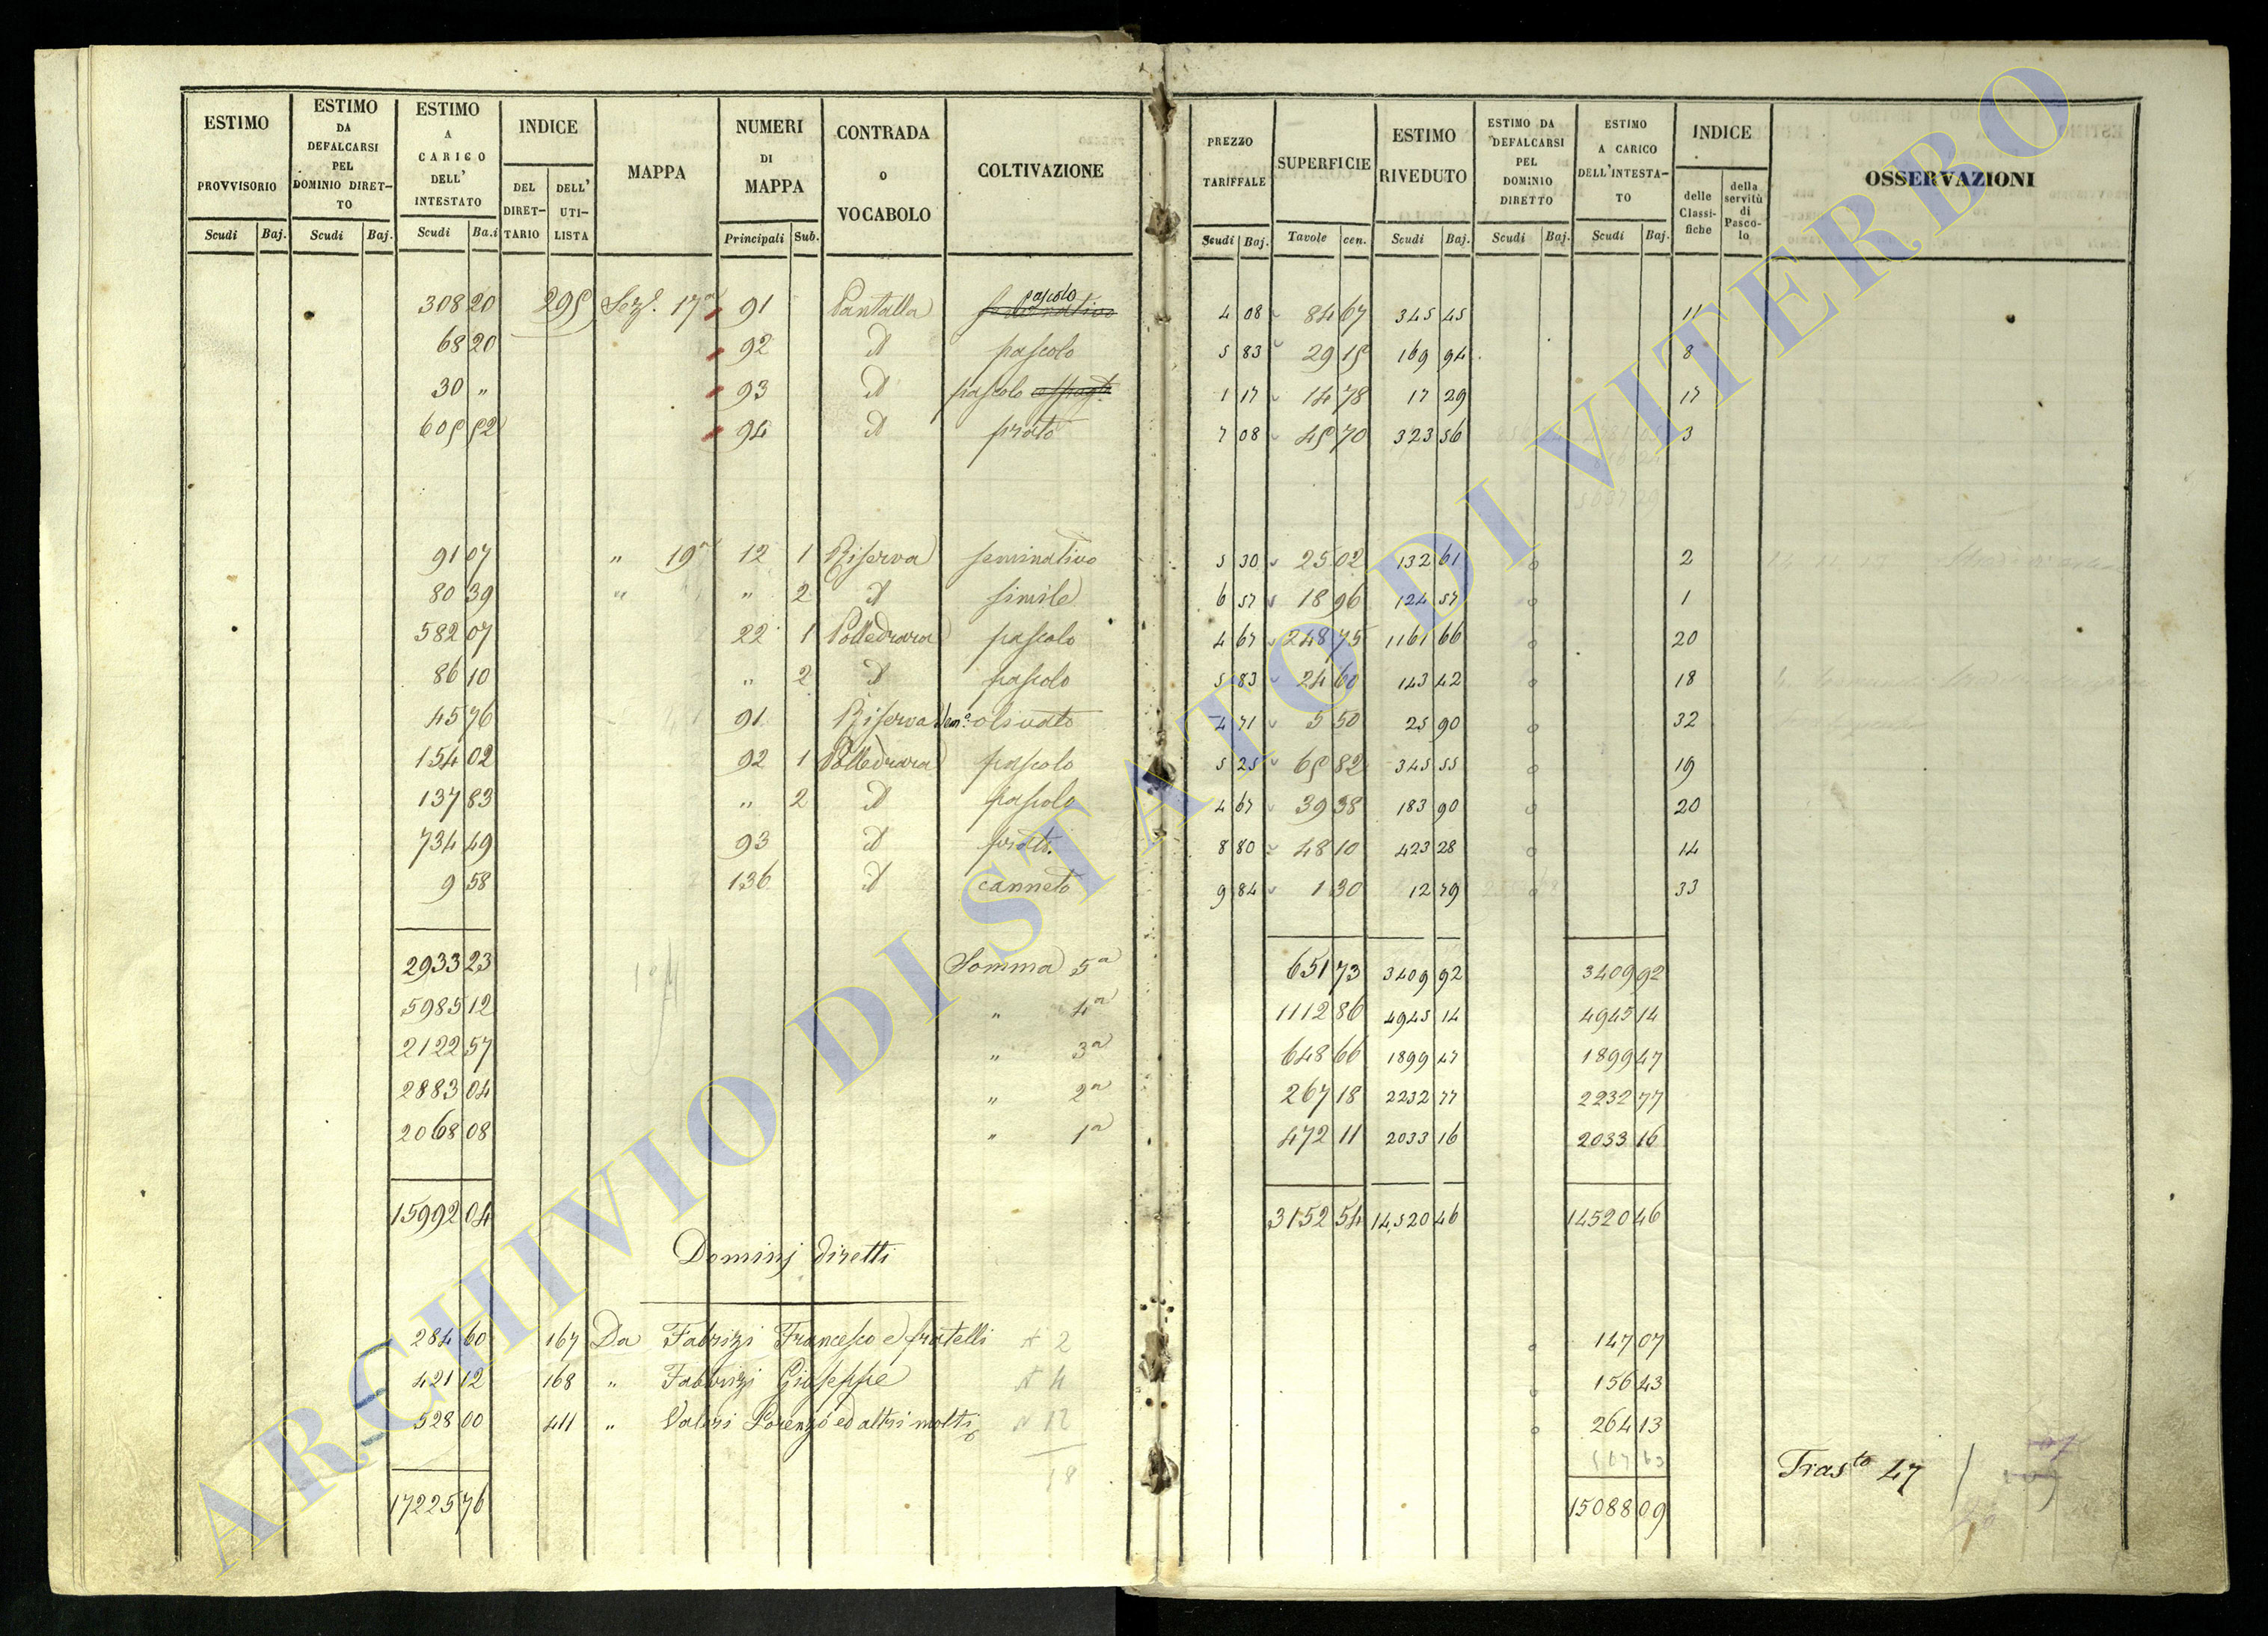 ESTIMO PROVVISORIO Scudi Baj.
ESTIMO DA DEFALCARSI PEL DOMINIO DIRETTO Scudi Baj.
ESTIMO A CARICO DELL' INTESTATO Scudi Ba.i
INDICE DEL DIRETTARIO DELL' UTILISTA
MAPPA
NUMERI DI MAPPA Principali Sub.
CONTRADA O VOCABOLO
COLTIVAZIONE
PREZZO TARIFFALE Scudi Baj.
SUPERFICIE Tavole cen.
ESTIMO RIVEDUTO Scudi Baj.
ESTIMO DA DEFALCARSI PEL DOMINIO DIRETTO Scudi Baj.
ESTIMO A CARICO DELL'INTESTATO Scudi Baj.
INDICE delle Classifiche della servitù di Pascolo
OSSERVAZIONI
308 20 295 Sez.e 17a 91 Pantalla pascolo 4 08 84 67 345 45 11
68 20 92 d pascolo 5 83 29 15 169 94 8
30 " 93 d pascolo 1 17 14 78 17 29 17
605 52 94 d prato 7 08 45 70 323 56 3
91 07 " 19a 12 1 Riserva seminativo 5 30 25 02 132 61 2
80 39 " " 2 d simile 6 57 18 96 124 57 1
582 07 22 1 Polledrara pascolo 4 67 248 75 1161 66 20
86 10 " 2 d pascolo 5 83 24 60 143 42 18
45 76 91 Riserva Sem.o olivato 4 71 5 50 25 90 32
154 02 92 1 Polledrara pascolo 5 25 65 82 345 55 19
137 83 " 2 d pascolo 4 67 39 38 183 90 20
734 49 93 d prato 8 80 48 10 423 28 14
9 58 136 d canneto 9 84 1 30 12 79 33
2933 23 Somma 5a 651 73 3409 92 3409 92
5985 12 " 4a 1112 86 4945 14 4945 14
2122 57 " 3a 648 66 1899 47 1899 47
2883 04 " 2a 267 18 2232 77 2232 77
2068 08 " 1a 472 11 2033 16 2033 16
15992 04 3152 54 14520 46 14520 46
Dominj diretti
284 60 167 Da Fabrizi Francesco e fratelli N 2 147 07
421 12 168 " Fabbrizi Giuseppe N 4 156 43
528 00 411 " Valeri Lorenzo ed altri molti N 12 264 13
18 567 63
Trasto 47
17225 76 15088 09
ARCHIVIO DI STATO DI VITERBO